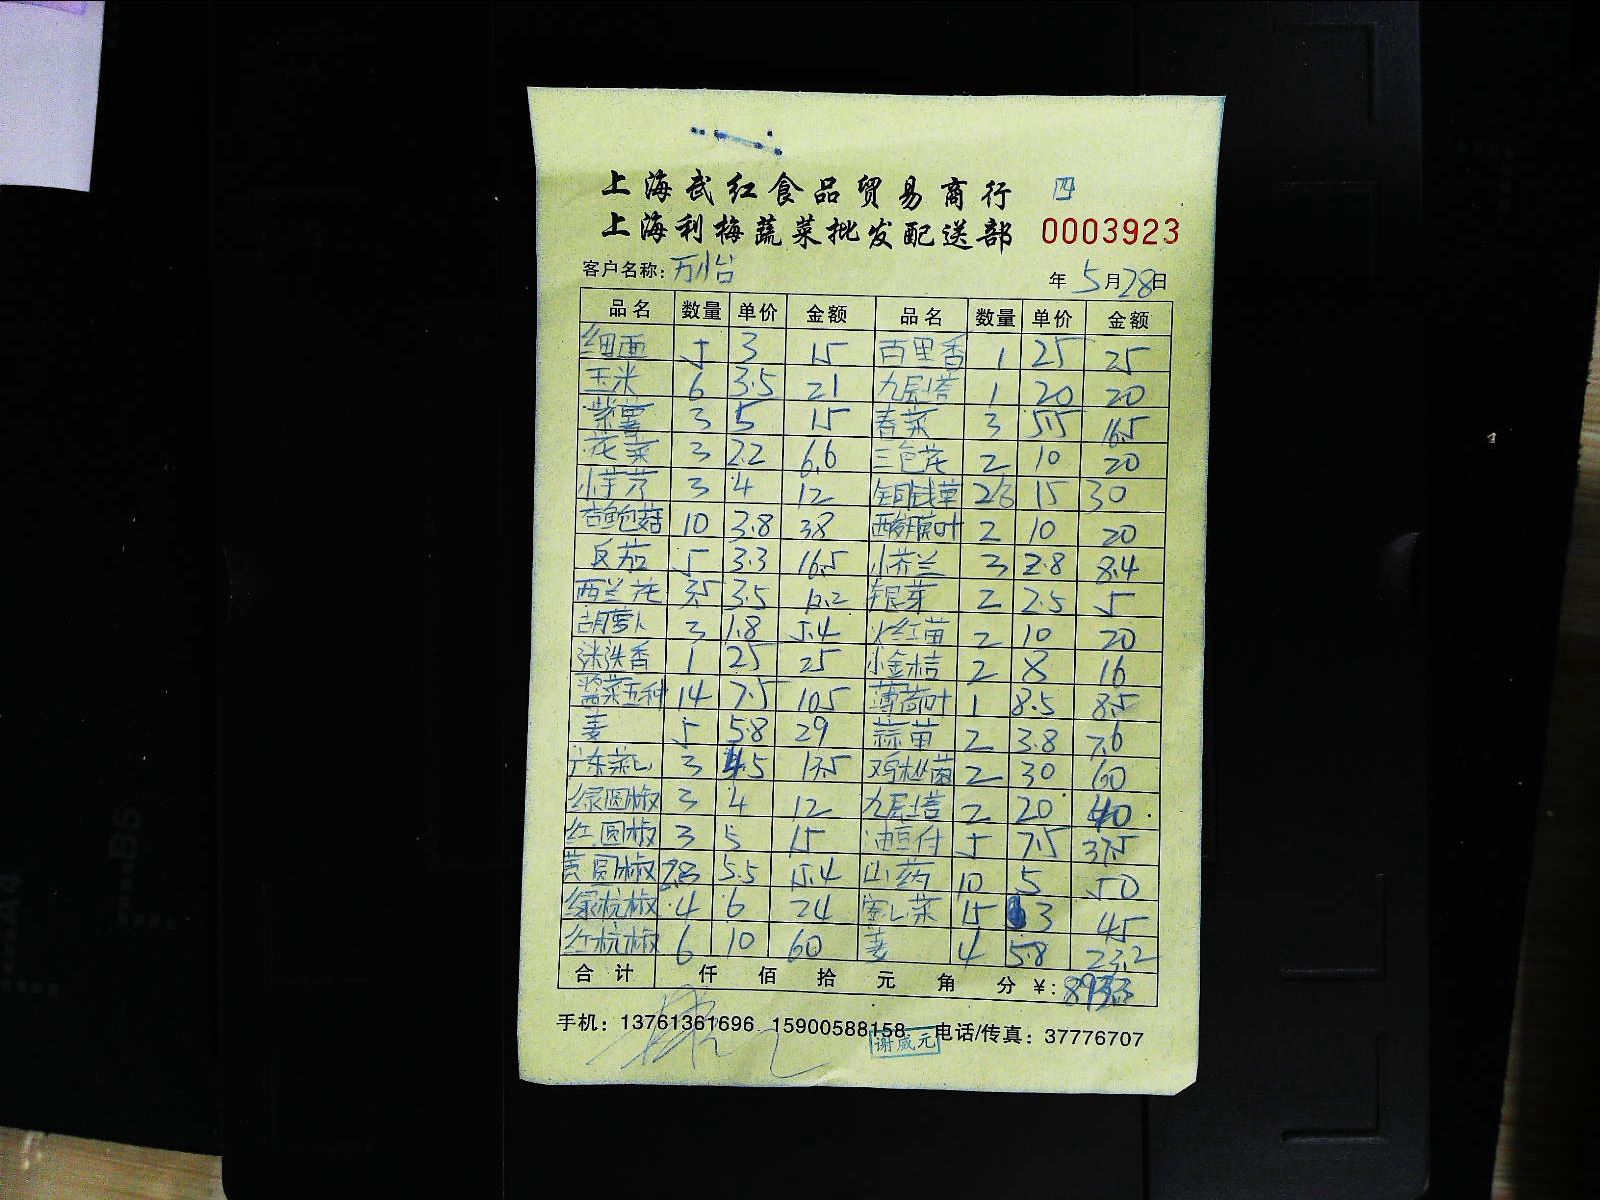 上海武红食品贸易商行 四
上海利梅蔬菜批发配送部 0003923
客户名称: 万怡 年 5 月 28 日
品名 数量 单价 金额 品名 数量 单价 金额
5 3 15 百里香 1 25 25
玉米 6 3.5 21 九层塔 1 20 20
紫薯 3 5 15 春菜 3 5.5 16.5
花菜 3 2.2 6.6 三色花 2 10 20
小芋艿 3 4 12 铜钱草 15 30
杏鲍菇 10 3.8 38 酸模叶 2 10 20
5 3.3 16.5 小芥兰 3 2.8 8.4
西兰花 3.5 3.5 12.2 银芽 2 2.5 5
胡萝卜 3 1.8 5.4 火红苗 2 10 20
迷迭香 1 25 25 小金桔 2 8 16
酱菜五种 14 7.5 105 薄荷叶 1 8.5 8.5
姜 5 5.8 29 蒜苗 2 3.8 7.6
广东菜心 3 4.5 13.5 鸡枞菌 2 30 60
绿圆椒 3 4 12 九层塔 2 20 40
红圆椒 3 5 15 油豆付 5 7.5 37.5
黄圆椒 2.8 5.5 15.4 山药 10 5 50
绿杭椒 4 6 24 15 3 45
红杭椒 6 10 60 姜 4 5.8 23.2
合计 仟 佰 拾 元 角 分 ¥:
手机: 13761361696 15900588158 电话/传真: 37776707
谢威元